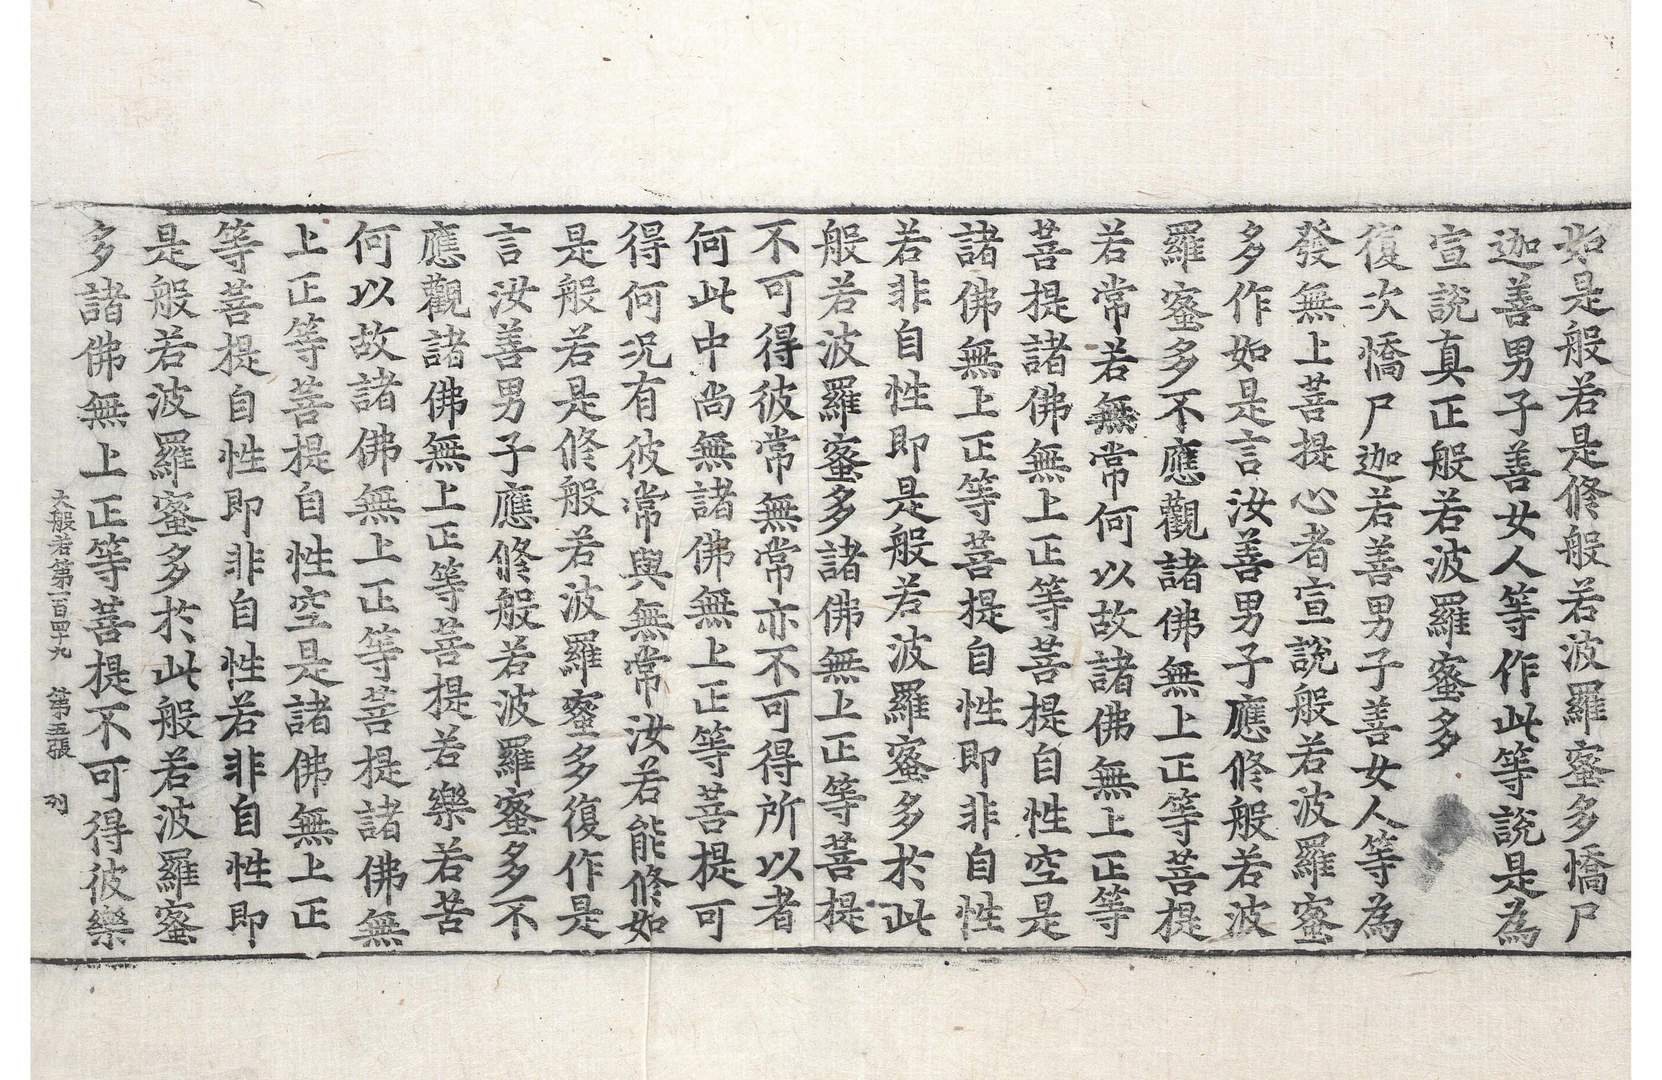 如是般若是修般若波羅蜜多憍尸
迦善男子善女人等作此等說是為
宣說真正般若波羅蜜多
復次憍尸迦若善男子善女人等為
發無上菩提心者宣說般若波羅蜜
多作如是言汝善男子應修般若波
羅蜜多不應觀諸佛無上正等菩提
若常若無常何以故諸佛無上正等
菩提諸佛無上正等菩提自性空是
諸佛無上正等菩提自性即非自性
若非自性即是般若波羅蜜多於此
般若波羅蜜多諸佛無上正等菩提
不可得彼常無常亦不可得所以者
何此中尚無諸佛無上正等菩提可
得何況有彼常與無常汝若能修如
是般若是修般若波羅蜜多復作是
言汝善男子應修般若波羅蜜多不
應觀諸佛無上正等菩提若樂若苦
何以故諸佛無上正等菩提諸佛無
上正等菩提自性空是諸佛無上正
等菩提自性即非自性若非自性即
是般若波羅蜜多於此般若波羅蜜
多諸佛無上正等菩提不可得彼樂
大般若第一百四十九 第五張 列